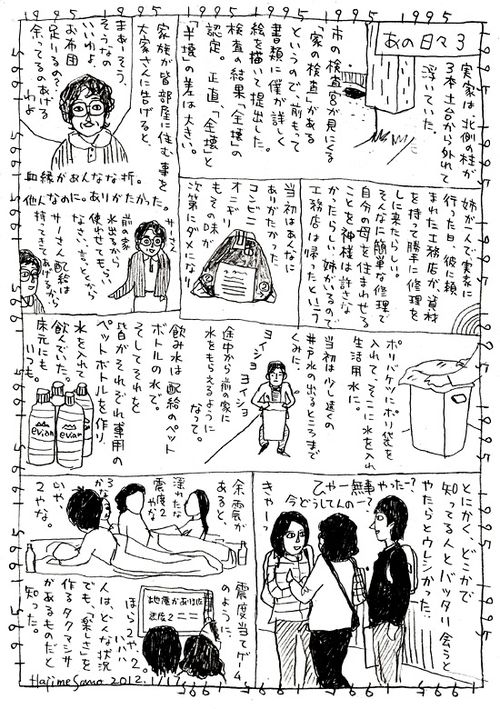 あの日々 3
実家は北側の柱が
3本土台から外れて
浮いていた。
市の検査官が見にくる
「家の検査」がある
というので、前もって
書類に僕が詳しく
絵を描いて提出した。
検査の結果「全壊」の
認定。正直、「全壊」と
「半壊」の差は大きい。
家族が皆部屋に住む事を
大家さんに告げると、
まぁーそう
そうなの
いいわよ、
お布団
足りるの?
余ってるのあげる
わよ
血縁があんなな折。
他人なのに。ありがたかった。
姉が一人で実家に
行った日、彼に頼
まれた工務店が、資材
を持って勝手に修理を
しに来たらしい。
そんなに簡単な修理で
自分の母を住まわせる
ことを神様は許さな
かったらしい。姉がいるので
工務店は帰ったという。
当初はあんなに
ありがたかった、
コンビニ
オニギリ
もその味が
次第にダメになり
サーさん
前の家
水出るから
使わせてもらい
なさい、言っとくから
サーさん配給は
持ってきてあげるから
ポリバケツにポリ袋を
入れて、そこに水を入れ
生活用水に。
当初は少し遠くの
井戸水の出るところまで
くみに、
ヨイショ
ヨイショ
途中から前の家に
水をもらえるように
なって。
飲み水は配給のペット
ボトルの水で。
そしてそれを
皆がそれぞれ専用の
ペットボトルを作り、
水を入れて
飲んでた。
床元にも
いつも。
evian
evian
とにかく、どこかで
知ってる人とバッタリ会うと
やたらとウレシかった。
ひゃー無事やったー?
今どうしてんのー?
きゃーっ
余震が
あると、
深れたな
震度2
やな
いや
2やな。
震度当てゲーム
のように、
地震があり
震度2
ほら2や
ハハハ
人は、どんな状況
でも、「楽しさ」を
作るタクマシサ
があるものだと
知った。
Hajime Sano 2012.1/17